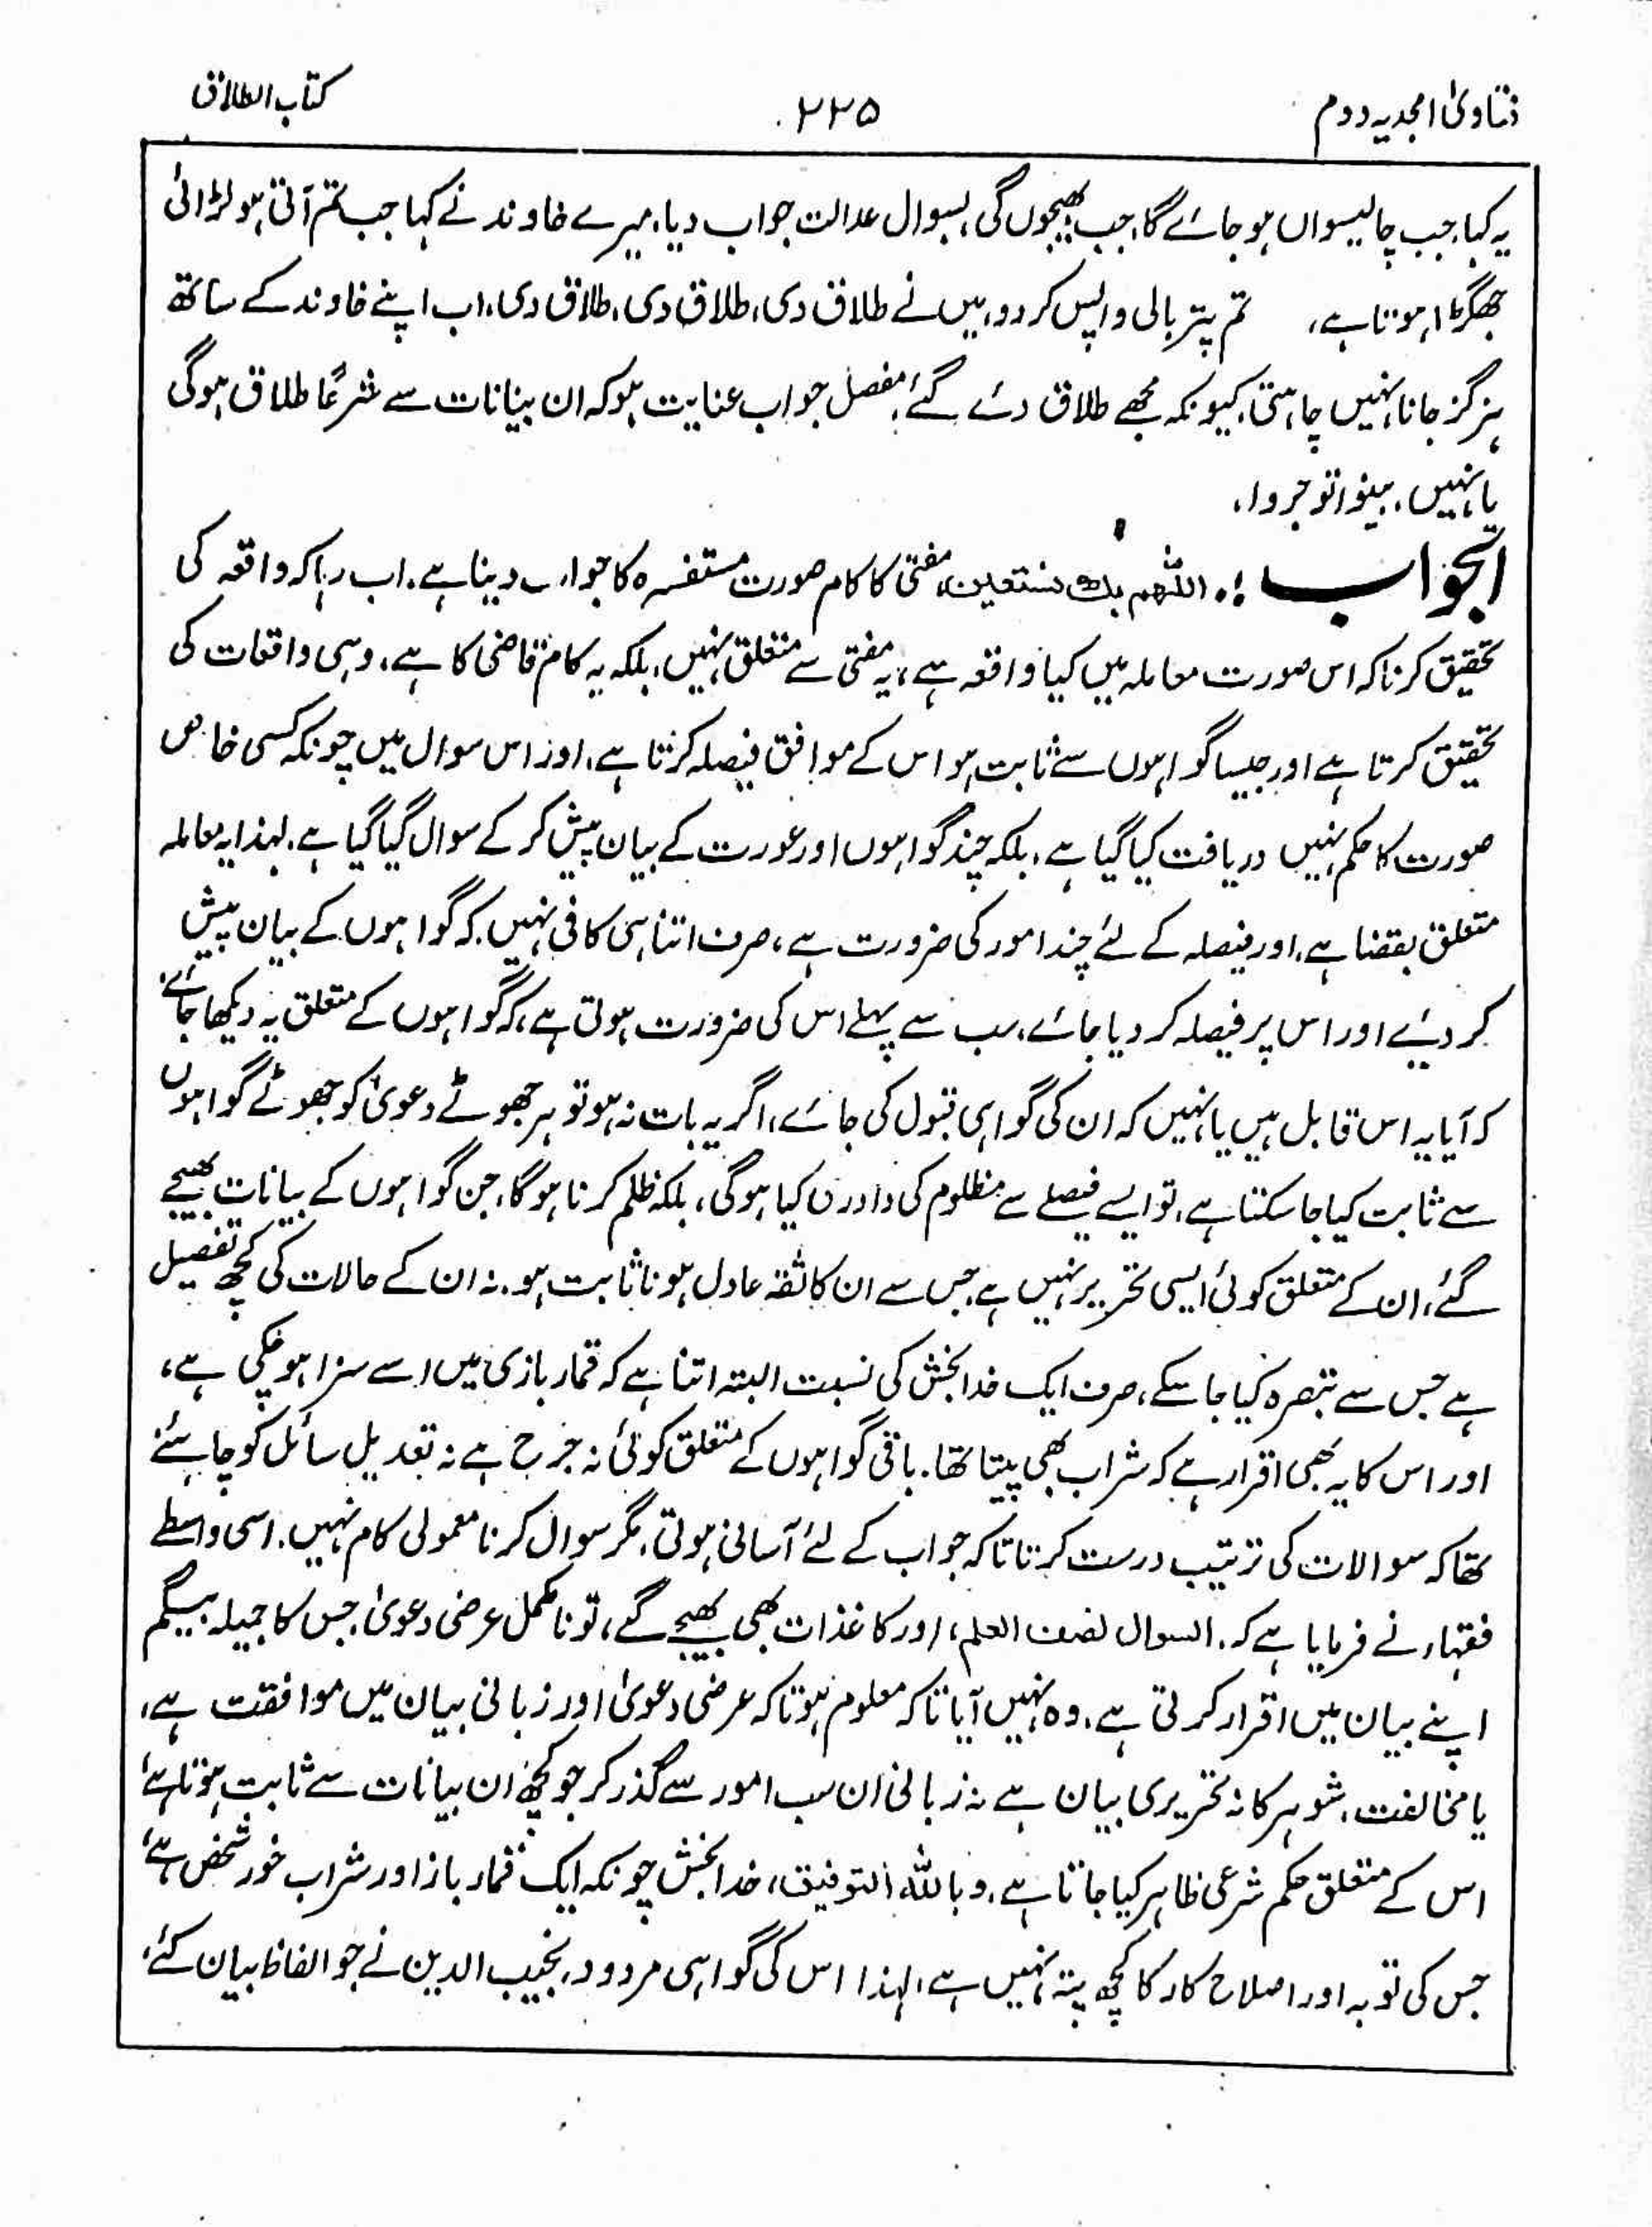 فتاویٰ امجدیہ دوم ۲۲۵ کتاب الطلاق
یہ کہا، جب چالیسواں ہو جائے گا، جب بھیجوں گی، بسوال عدالت جواب دیا، میرے خاوند نے کہا جب تم آتی ہو لڑائی
جھگڑا ہوتا ہے، تم پتر بالی واپس کردو، میں نے طلاق دی، طلاق دی، طلاق دی، اب اپنے خاوند کے ساتھ
ہرگز جانا نہیں چاہتی، کیونکہ مجھے طلاق دئے گئے، مفصل جواب عنایت ہو کہ ان بیانات سے شرعًا طلاق ہوگی
یا نہیں، بینوا توجروا،
الجواب :۔ اللّٰهم بك نستعین، مفتی کا کام صورت مستفسرہ کا جواب دینا ہے۔ اب رہا کہ واقعہ کی
تحقیق کرنا کہ اس صورت معاملہ میں کیا واقعہ ہے، یہ مفتی سے متعلق نہیں، بلکہ یہ کام قاضی کا ہے، وہی واقعات کی
تحقیق کرتا ہے اور جیسا گواہوں سے ثابت ہو اس کے موافق فیصلہ کرتا ہے، اور اس سوال میں چونکہ کسی خاص
صورت کا حکم نہیں دریافت کیا گیا ہے، بلکہ چند گواہوں اور عورت کے بیان پیش کر کے سوال گیا گیا ہے، لہذا یہ معاملہ
متعلق بقضا ہے، اور فیصلہ کے لئے چند امور کی ضرورت ہے، صرف اتنا ہی کافی نہیں کہ گواہوں کے بیان پیش
کر دیے اور اس پر فیصلہ کر دیا جائے، سب سے پہلے اس کی ضرورت ہوتی ہے، کہ گواہوں کے متعلق یہ دیکھا جائے،
کہ آیا یہ اس قابل ہیں یا نہیں کہ ان کی گواہی قبول کی جائے، اگر یہ بات نہ ہو تو ہر جھوٹے دعویٰ کو جھوٹے گواہوں
سے ثابت کیا جا سکتا ہے، تو ایسے فیصلے سے مظلوم کی دادرسی کیا ہوگی، بلکہ ظلم کرنا ہوگا، جن گواہوں کے بیانات بھیجے
گئے، ان کے متعلق کوئی ایسی تحریر نہیں ہے جس سے ان کا ثقہ عادل ہونا ثابت ہو۔ نہ ان کے حالات کی کچھ تفصیل
ہے جس سے تبصرہ کیا جا سکے، صرف ایک خدا بخش کی نسبت البتہ اتنا ہے کہ قمار بازی میں اسے سزا ہو چکی ہے،
اور اس کا یہ بھی اقرار ہے کہ شراب بھی پیتا تھا۔ باقی گواہوں کے متعلق کوئی نہ جرح ہے نہ تعدیل سائل کو چاہئے
تھا کہ سوالات کی ترتیب درست کرتا تاکہ جواب کے لئے آسانی ہوتی، مگر سوال کرنا معمولی کام نہیں۔ اسی واسطے
فقہاء نے فرمایا ہے کہ، السوال نصف العلم، اور کاغذات بھی بھیجے گے، تو نامکمل عرضی دعویٰ، جس کا جمیلہ بیگم
اپنے بیان میں اقرار کرتی ہے، وہ نہیں آیا تاکہ معلوم ہوتا کہ عرضی دعویٰ اور زبانی بیان میں موافقت ہے،
یا مخالفت، شوہر کا نہ تحریری بیان ہے نہ زبانی ان سب امور سے گذر کر جو کچھ ان بیانات سے ثابت ہوتا ہے،
اس کے متعلق حکم شرعی ظاہر کیا جاتا ہے، و باللّٰہ التوفیق، خدا بخش چونکہ ایک قمار باز اور شراب خور شخص ہے،
جس کی توبہ اور اصلاح کار کا کچھ پتہ نہیں ہے، لہذا اس کی گواہی مردود، نجیب الدین نے جو الفاظ بیان کئے،